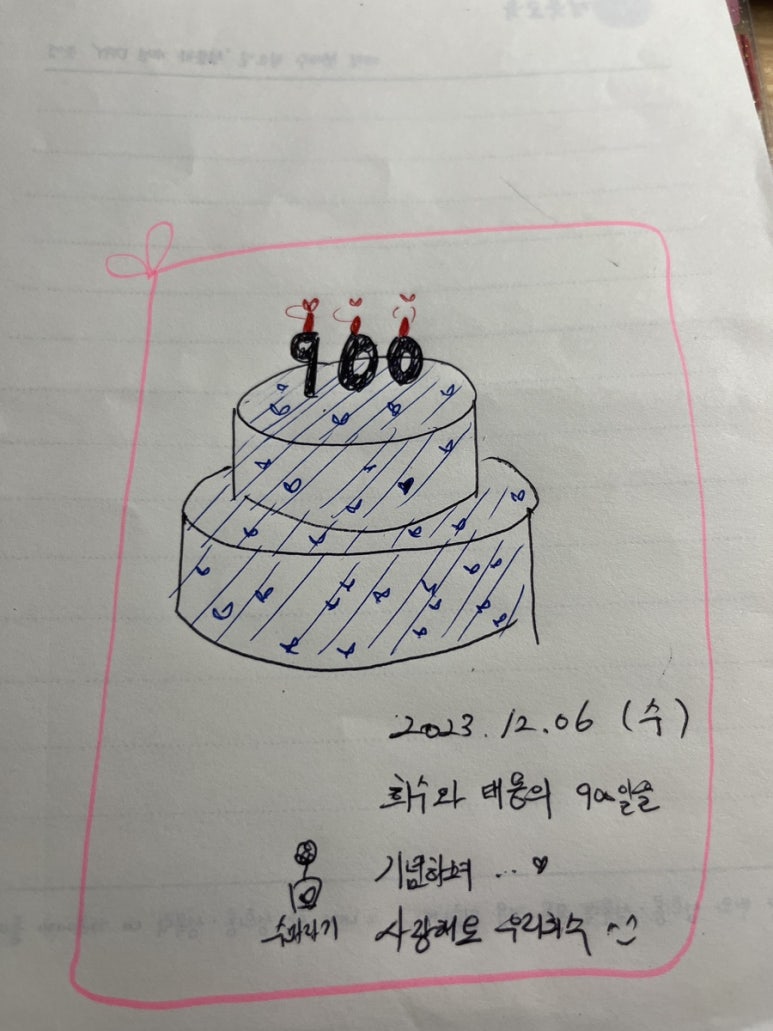 900
2023.12.06 (수)
희수와 태웅의 900일을
기념하며 ... ♡
사랑해요 우리희수 ^^